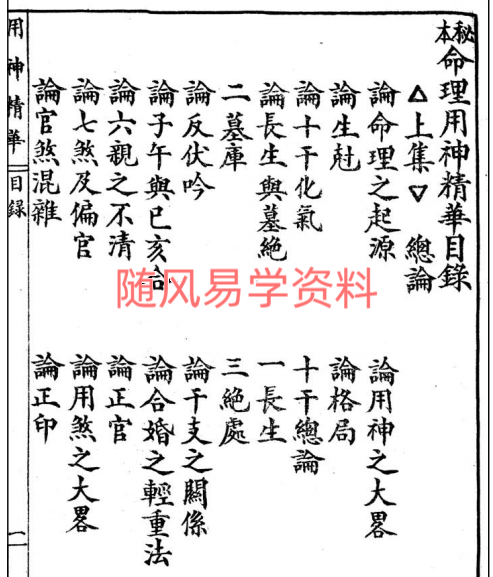 秘本命理用神精華目錄
△上集▽　總論
論命理之起源　論用神之大畧
論生尅　論格局
論十干化氣　十干總論
論長生與墓絕　一長生
二墓庫　三絕處
論反伏吟　論干支之關係
論子午與巳亥合　論合婚之輕重法
論六親之不清　論正官
論七煞及偏官　論用煞之大畧
論官煞混雜　論正印
用神精華　目錄　一
随风易学资料